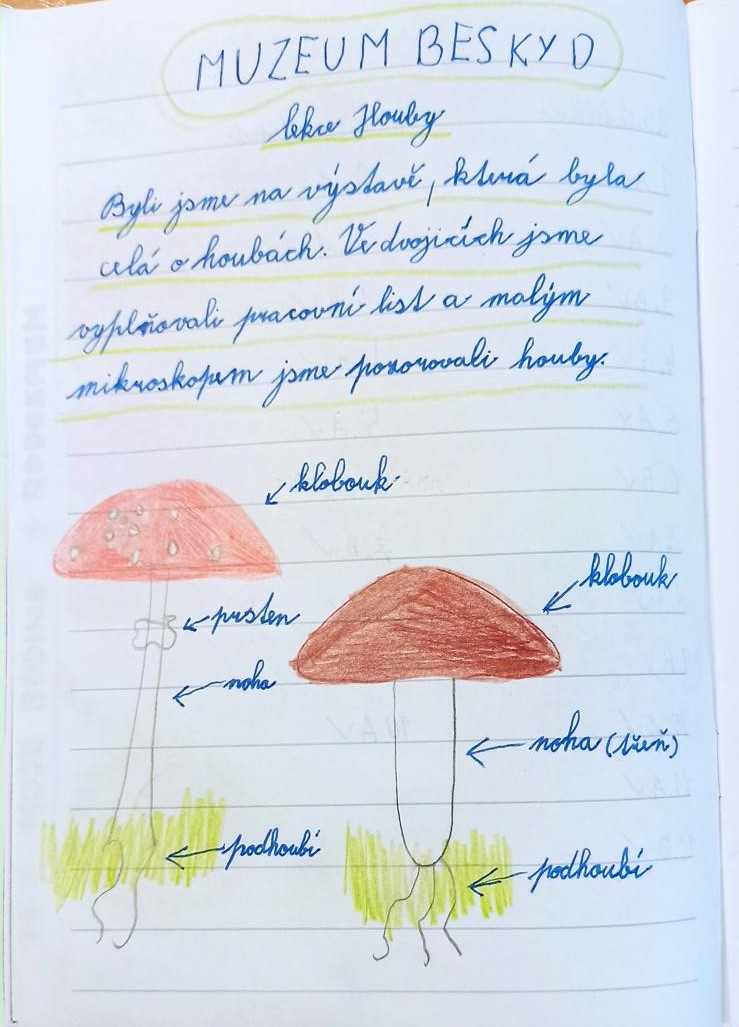 MUZEUM BESKYD
lekce Houby
Byli jsme na výstavě, která byla
celá o houbách. Ve dvojicích jsme
vyplňovali pracovní list a malým
mikroskopem jsme pozorovali houby.
klobouk
klobouk
prsten
noha
noha (třeň)
podhoubí
podhoubí